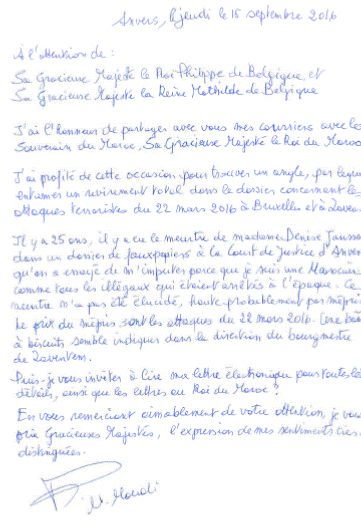 Anvers, le jeudi le 15 septembre 2016
À l'attention de :
Sa Gracieuse Majesté le Roi Philippe de Belgique, et
Sa Gracieuse Majesté la Reine Mathilde de Belgique
J'ai l'honneur de partager avec vous mes courriers avec le
Souverain du Maroc, Sa Gracieuse Majesté le Roi du Maroc
J'ai profité de cette occasion pour trouver un angle, par
entamer un revirement total dans le dossier concernant les
attaques terroristes du 22 mars 2016 à Bruxelles et à
Il y a 25 ans, il y a eu le meurtre de madame Denise
dans un dossier de faux papiers à la Court de Justice d'Anvers
qu'on a essayé de m'imputer parce que je suis une Marocaine
comme tous les illégaux qui étaient arrêtés à l'époque. Ce
meurtre n'a pas été élucidé, haute probablement par mépris
Le prix du mépris sont les attaques du 22 mars 2016. Une
à biscuits semble indiquer dans la direction du bourgmestre
de Zaventem.
Puis-je vous inviter à lire ma lettre électronique pour toutes les
détails, ainsi que les lettres au Roi du Maroc ?
En vous remerciant aimablement de votre attention, je vous
prie Gracieuses Majestés, l'expression de mes sentiments très
distinguées.